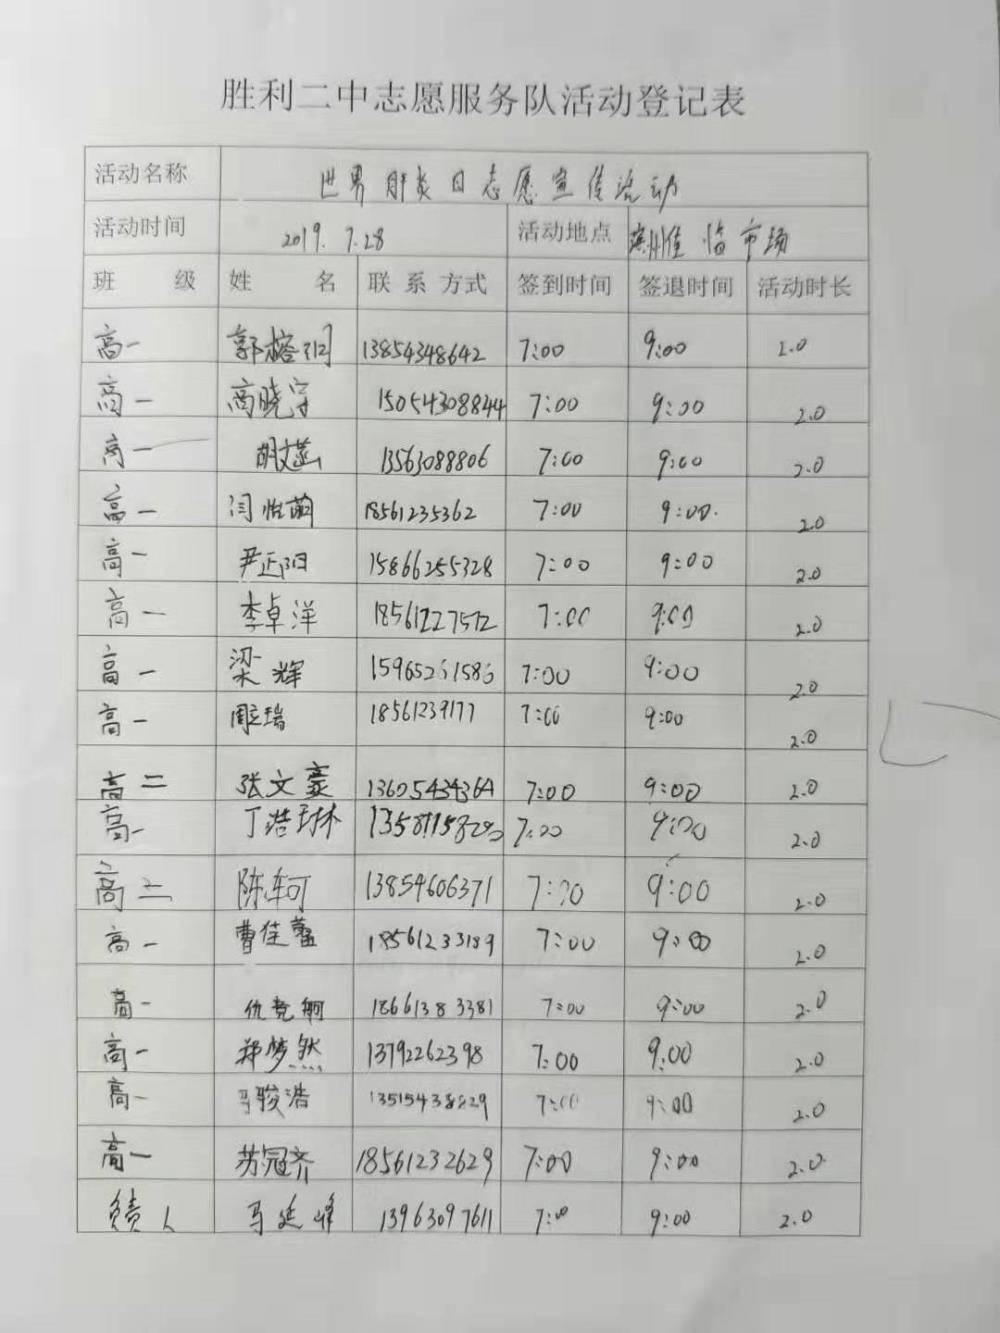 胜利二中志愿服务队活动登记表
活动名称 世界肝炎日志愿宣传活动
活动时间 2019.7.28 活动地点 临市场
班级 姓名 联系方式 签到时间 签退时间 活动时长
高一 郭榕 13854348642 7:00 9:00 2.0
高一 高晓宇 15054308844 7:00 9:00 2.0
高一 胡文菡 13563088806 7:00 9:00 2.0
高一 闫怡萌 18561235362 7:00 9:00. 2.0
高一 尹正阳 15866255328 7:00 9:00 2.0
高一 李卓洋 18561227572 7:00 9:00 2.0
高一 梁辉 15965261586 7:00 9:00 2.0
高一 周立瑞 18561239177 7:00 9:00 2.0
高二 张文豪 7:00 9:00 2.0
高一 丁浩琳 7:00 9:00 2.0
高二 陈轲 13854606371 7:00 9:00 2.0
高一 曹佳 18561233189 7:00 9:00 2.0
高一 仇竞 18661383381 7:00 9:00 2.0
高一 郑梦然 13792262398 7:00 9:00 2.0
高一 马骏浩 7:00 9:00 2.0
高一 苏冠齐 18561232629 7:00 9:00 2.0
负责人 马延峰 13963097611 7:00 9:00 2.0